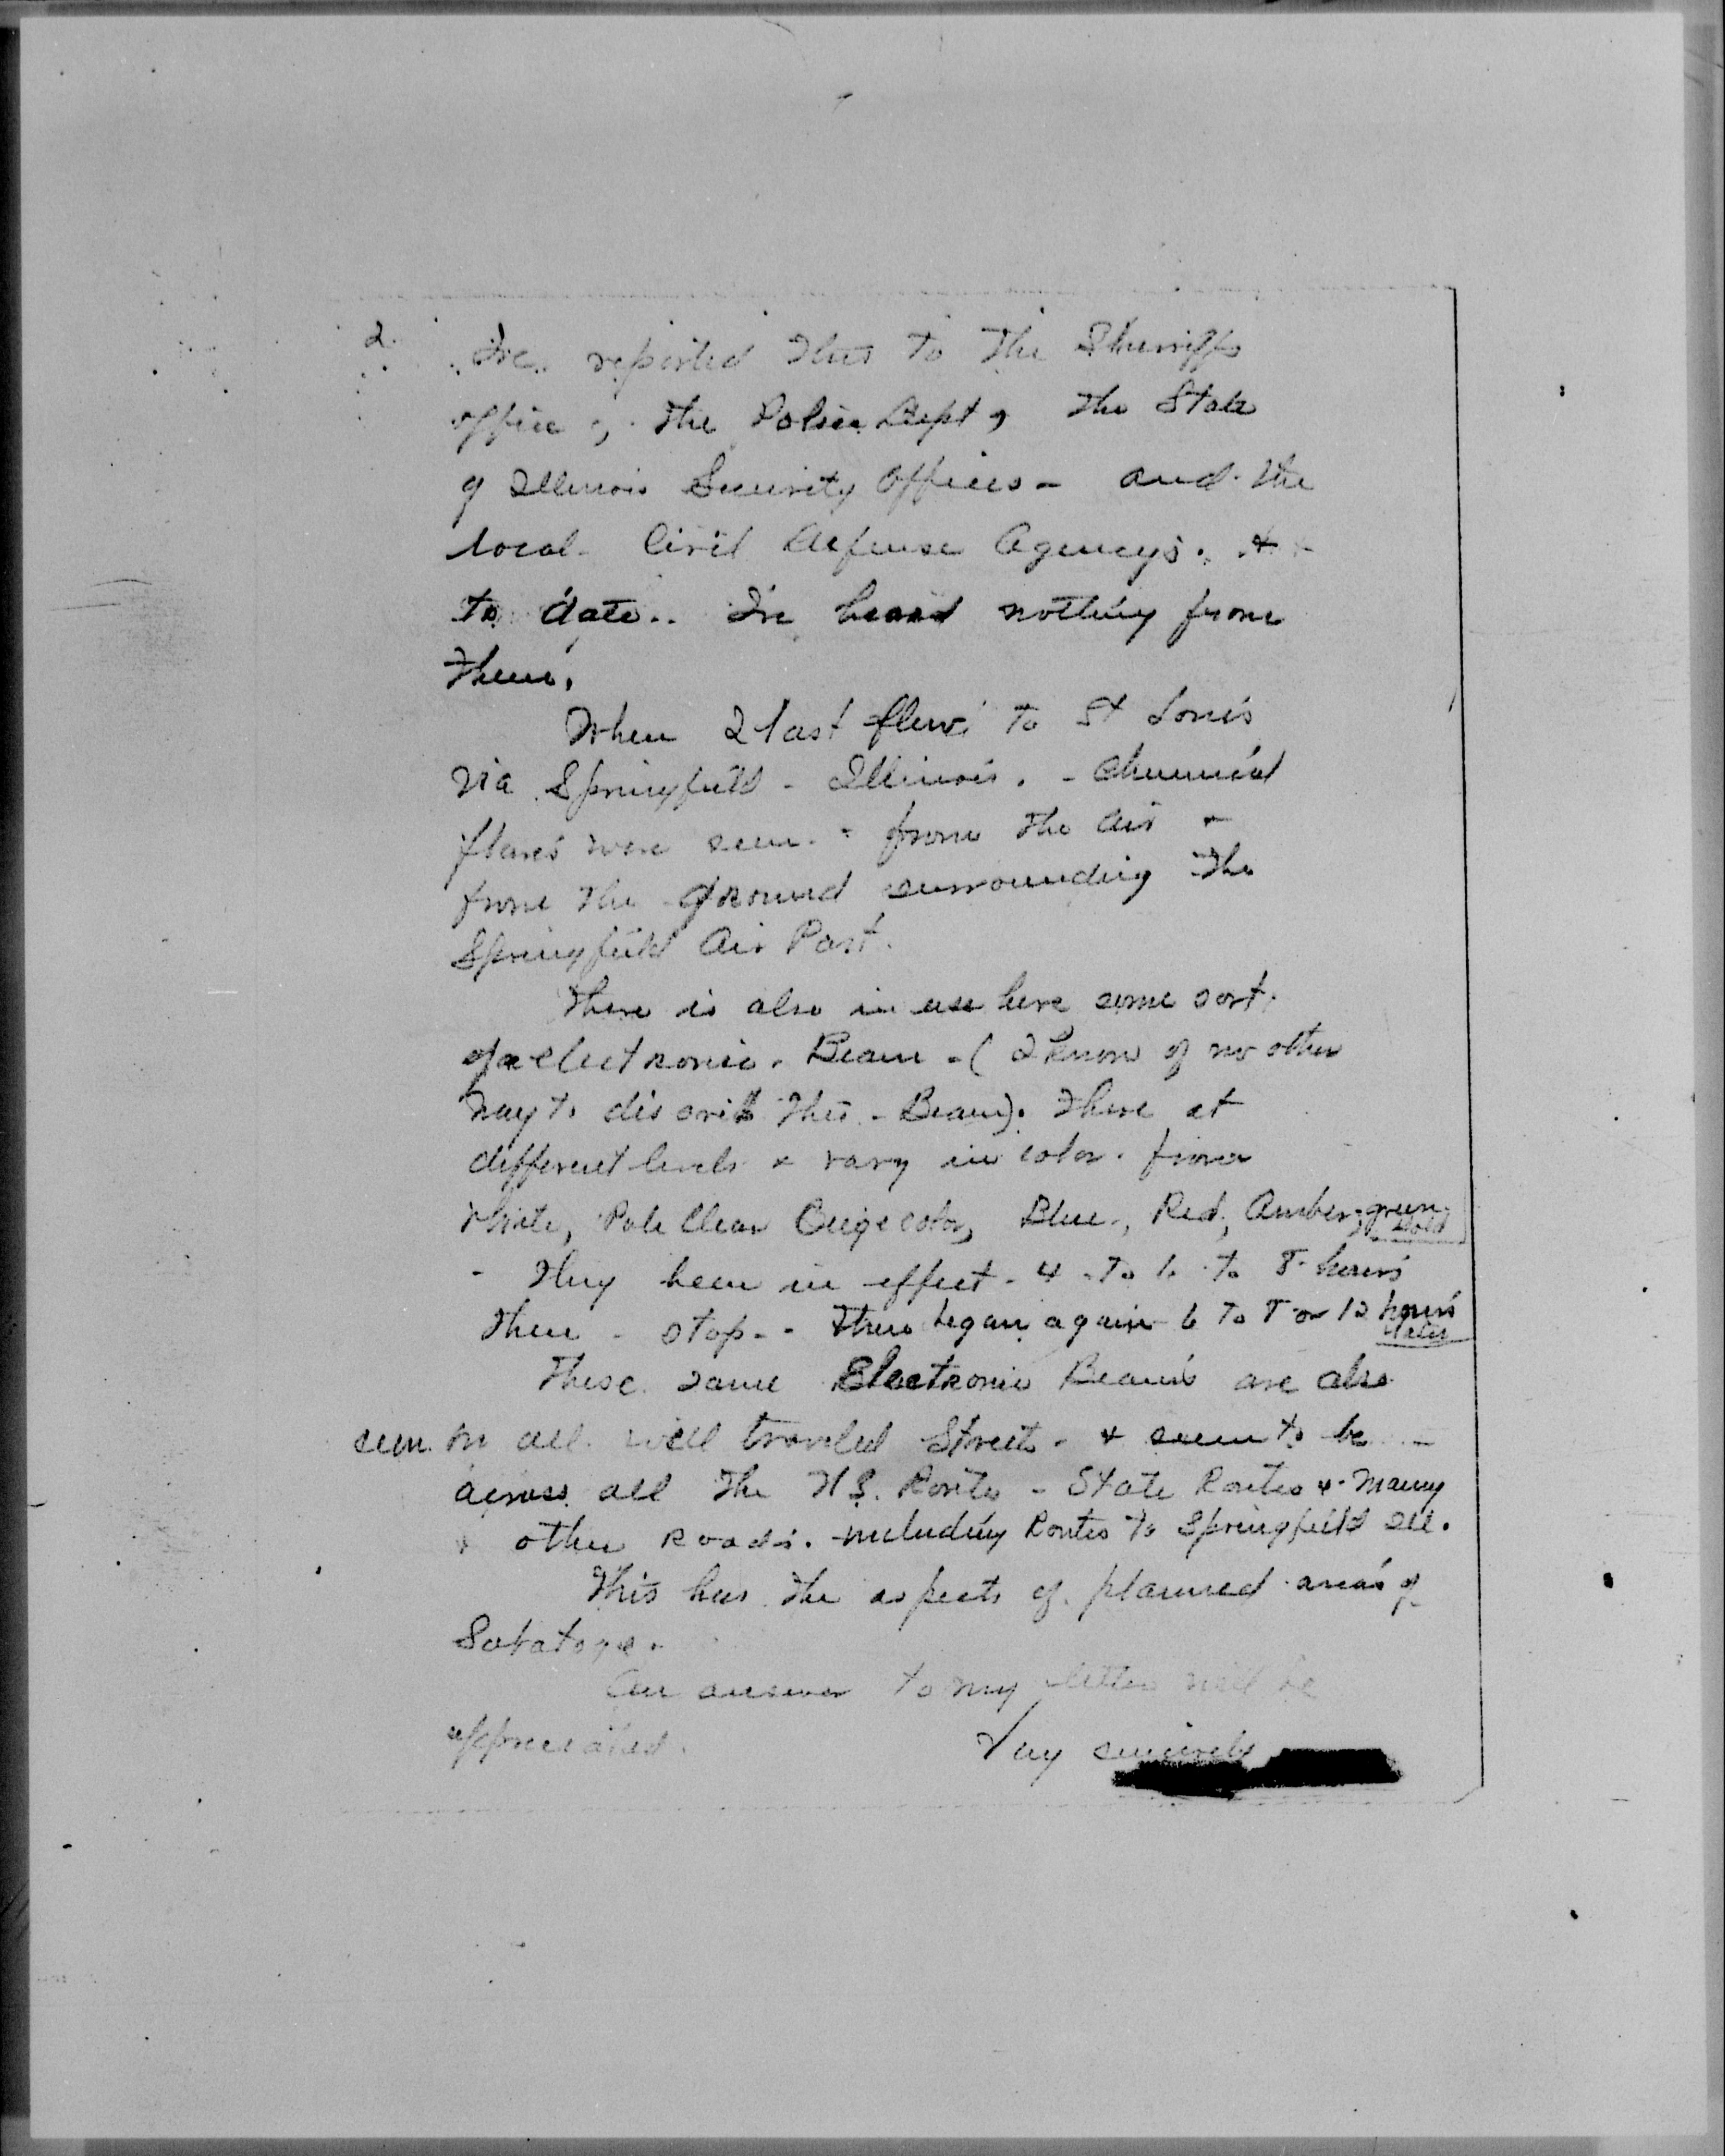 2.
I've reported this to the Sherriffs
office, the Police Dept, the State
of Illinois Security Offices - and the
local Civil Defense Agencys. &
to date.. I've heard nothing from
them.
When I last flew to St Louis
via Springfield - Illinois. - Chemical
flares were seen - from the air -
from the ground surrounding the
Springfield Air Port.
There is also in use here some sort
of electronic Beam - (I know of no other
way to discribe this - Beam). These at
different levels & vary in color from
White, Pale Clear Beige color, Blue, Red, Amber, green,
Gold
- They been in effect - 4 to 6 to 8 hours
then - stop - - then began again 6 to 8 or 12 hours
later
These same Electronic Beams are also
seen on all well traveled Streets - & seem to be -
across all the U.S. Routes - State Routes & many
other Roads. including Routes to Springfield Ill.
This has the aspects of planned areas of
Sabatoge.
An answer to my letter will be
appreciated.
Very sincerely